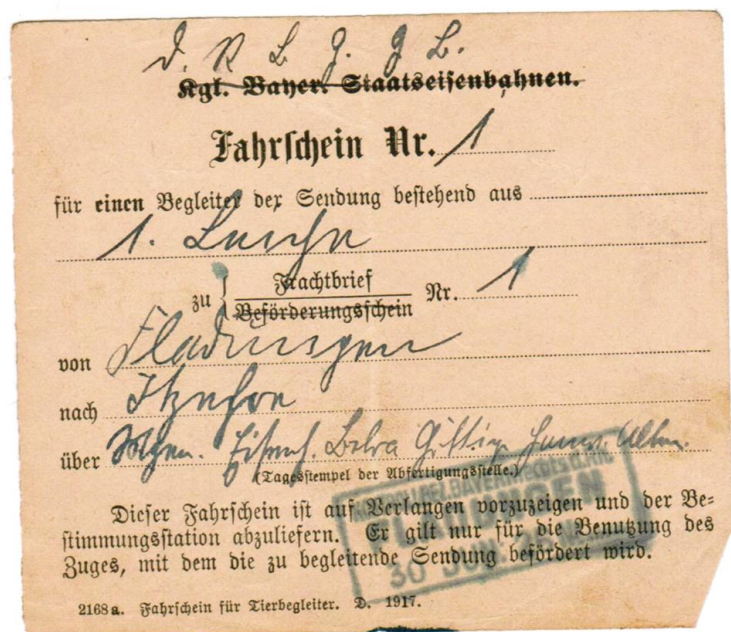 D. R. B. Z. Z. B.
Kgl. Bayer. Staatseisenbahnen.
Fahrschein Nr. 1
für einen Begleiter der Sendung bestehend aus
1. Leiche
zu Frachtbrief Nr. 1
Beförderungsschein
von Fladungen
nach Itzehoe
über Mgn. Eisenf. Bebra
(Tagesstempel der Abfertigungsstelle.)
FLADUNGEN
30
Dieser Fahrschein ist auf Verlangen vorzuzeigen und der Be-
stimmungsstation abzuliefern. Er gilt nur für die Benutzung des
Zuges, mit dem die zu begleitende Sendung befördert wird.
2168a. Fahrschein für Tierbegleiter. D. 1917.